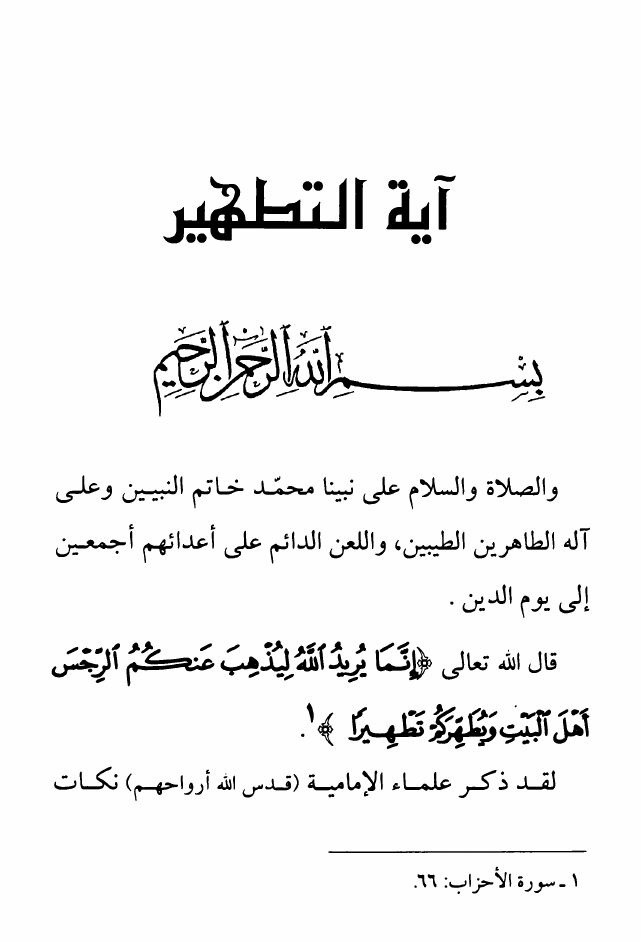 آية التطهير
بسم الله الرحمن الرحيم
والصلاة والسلام على نبينا محمّد خاتم النبيين وعلى
آله الطاهرين الطيبين، واللعن الدائم على أعدائهم أجمعين
إلى يوم الدين .
قال الله تعالى ﴿إِنَّمَا يُرِيدُ ٱللَّهُ لِيُذْهِبَ عَنكُمُ ٱلرِّجْسَ
أَهْلَ ٱلْبَيْتِ وَيُطَهِّرَكُمْ تَطْهِيرًا ﴾١.
لقد ذكر علماء الإمامية (قدس الله أرواحهم) نكات
١ ـ سورة الأحزاب: ٦٦.